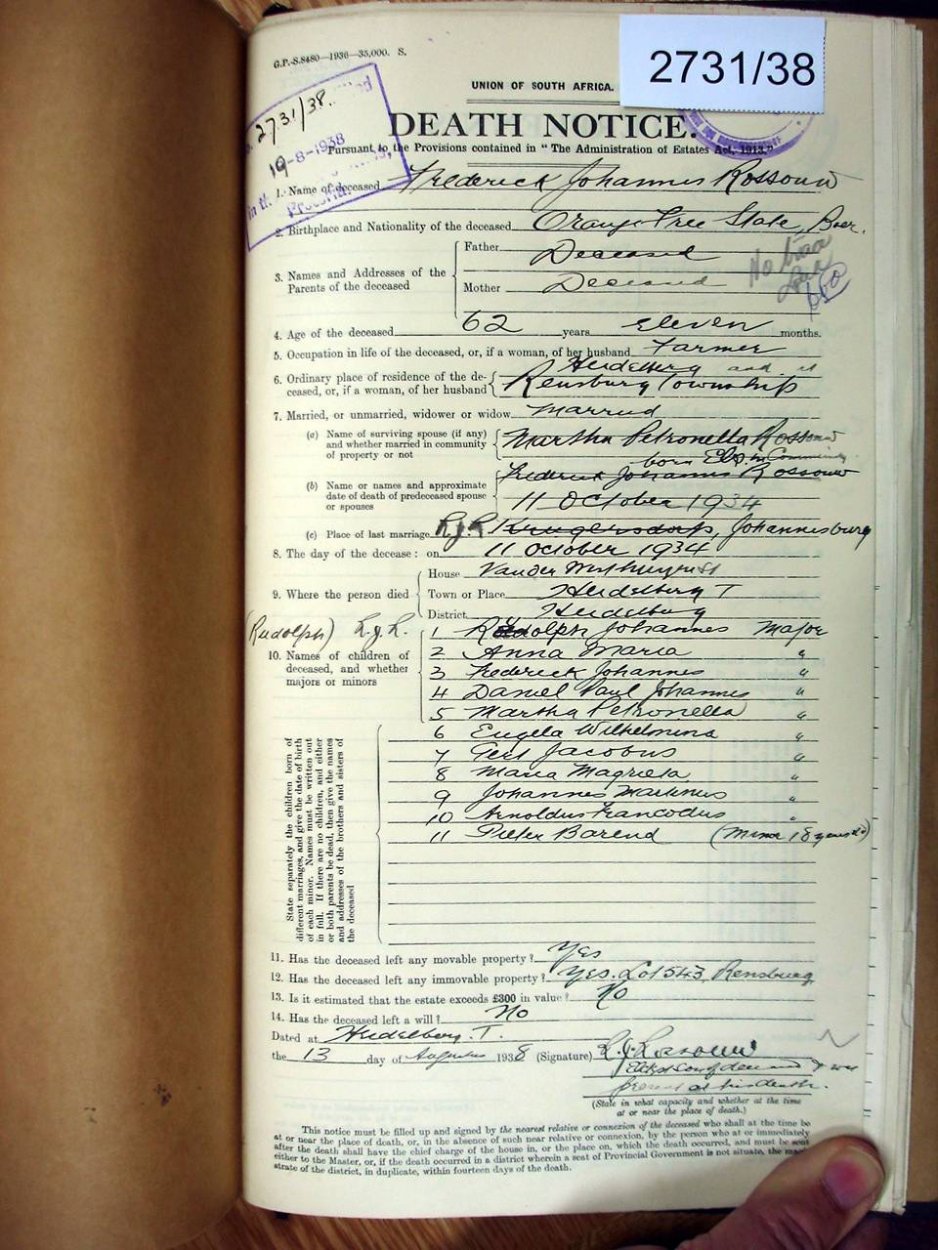 G.P.-S.8480—1936—35,000. S.
2731/38
UNION OF SOUTH AFRICA.
2731/38.
DEATH NOTICE.
19-8-1938
Pursuant to the Provisions contained in "The Administration of Estates Act, 1913."
1. Name of deceased Frederick Johannes Rossouw
2. Birthplace and Nationality of the deceased Orange Free State, Boer.
3. Names and Addresses of the Parents of the deceased
Father Deceased
Mother Deceased
4. Age of the deceased 62 years eleven months.
5. Occupation in life of the deceased, or, if a woman, of her husband Farmer
6. Ordinary place of residence of the deceased, or, if a woman, of her husband
Heidelberg and at
Rensburg Township
7. Married, or unmarried, widower or widow Married
(a) Name of surviving spouse (if any) and whether married in community of property or not
Martha Petronella Rossouw
born in Community
(b) Name or names and approximate date of death of predeceased spouse or spouses
Frederick Johannes Rossouw
11 October 1934
(c) Place of last marriage R.J.R. Krugersdorp, Johannesburg
8. The day of the decease: on 11 October 1934
9. Where the person died
House
Town or Place Heidelberg T
District Heidelberg
(Rudolph) R.J.R.
10. Names of children of deceased, and whether majors or minors
1 Rudolph Johannes Major
2 Anna Maria "
3 Frederick Johannes "
4 Daniel Paul Johannes "
5 Martha Petronella "
6 Eugela Wilhelmina "
7 Gert Jacobus "
8 Maria Magrieta "
9 Johannes Martenus "
10 Arnoldus Francodus "
11 Pieter Barend (Minor 18 years)
State separately the children born of different marriages, and give the date of birth of each minor. Names must be written out in full. If there are no children, and either or both parents be dead, then give the names and addresses of the brothers and sisters of the deceased
11. Has the deceased left any movable property? Yes
12. Has the deceased left any immovable property? Yes. Lot 543, Rensburg
13. Is it estimated that the estate exceeds £300 in value? No
14. Has the deceased left a will? No
Dated at Heidelberg. T.
the 13 day of Augustus 1938 (Signature) R.J. Rossouw
present at his death.
(State in what capacity and whether at the time
at or near the place of death.)
This notice must be filled up and signed by the nearest relative or connexion of the deceased who shall at the time be
at or near the place of death, or, in the absence of such near relative or connexion, by the person who at or immediately
after the death shall have the chief charge of the house in, or the place on, which the death occurred, and must be sent
either to the Master, or, if the death occurred in a district wherein a seat of Provincial Government is not situate, the
strate of the district, in duplicate, within fourteen days of the death.